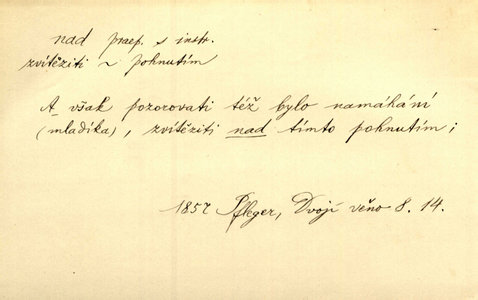 nad praep. s instr.
zvítěziti ~ pohnutím
A však pozorovati též bylo namáhání
(mladíka), zvítěziti nad tímto pohnutím;
1857 Pfleger, Dvojí věno 8. 14.